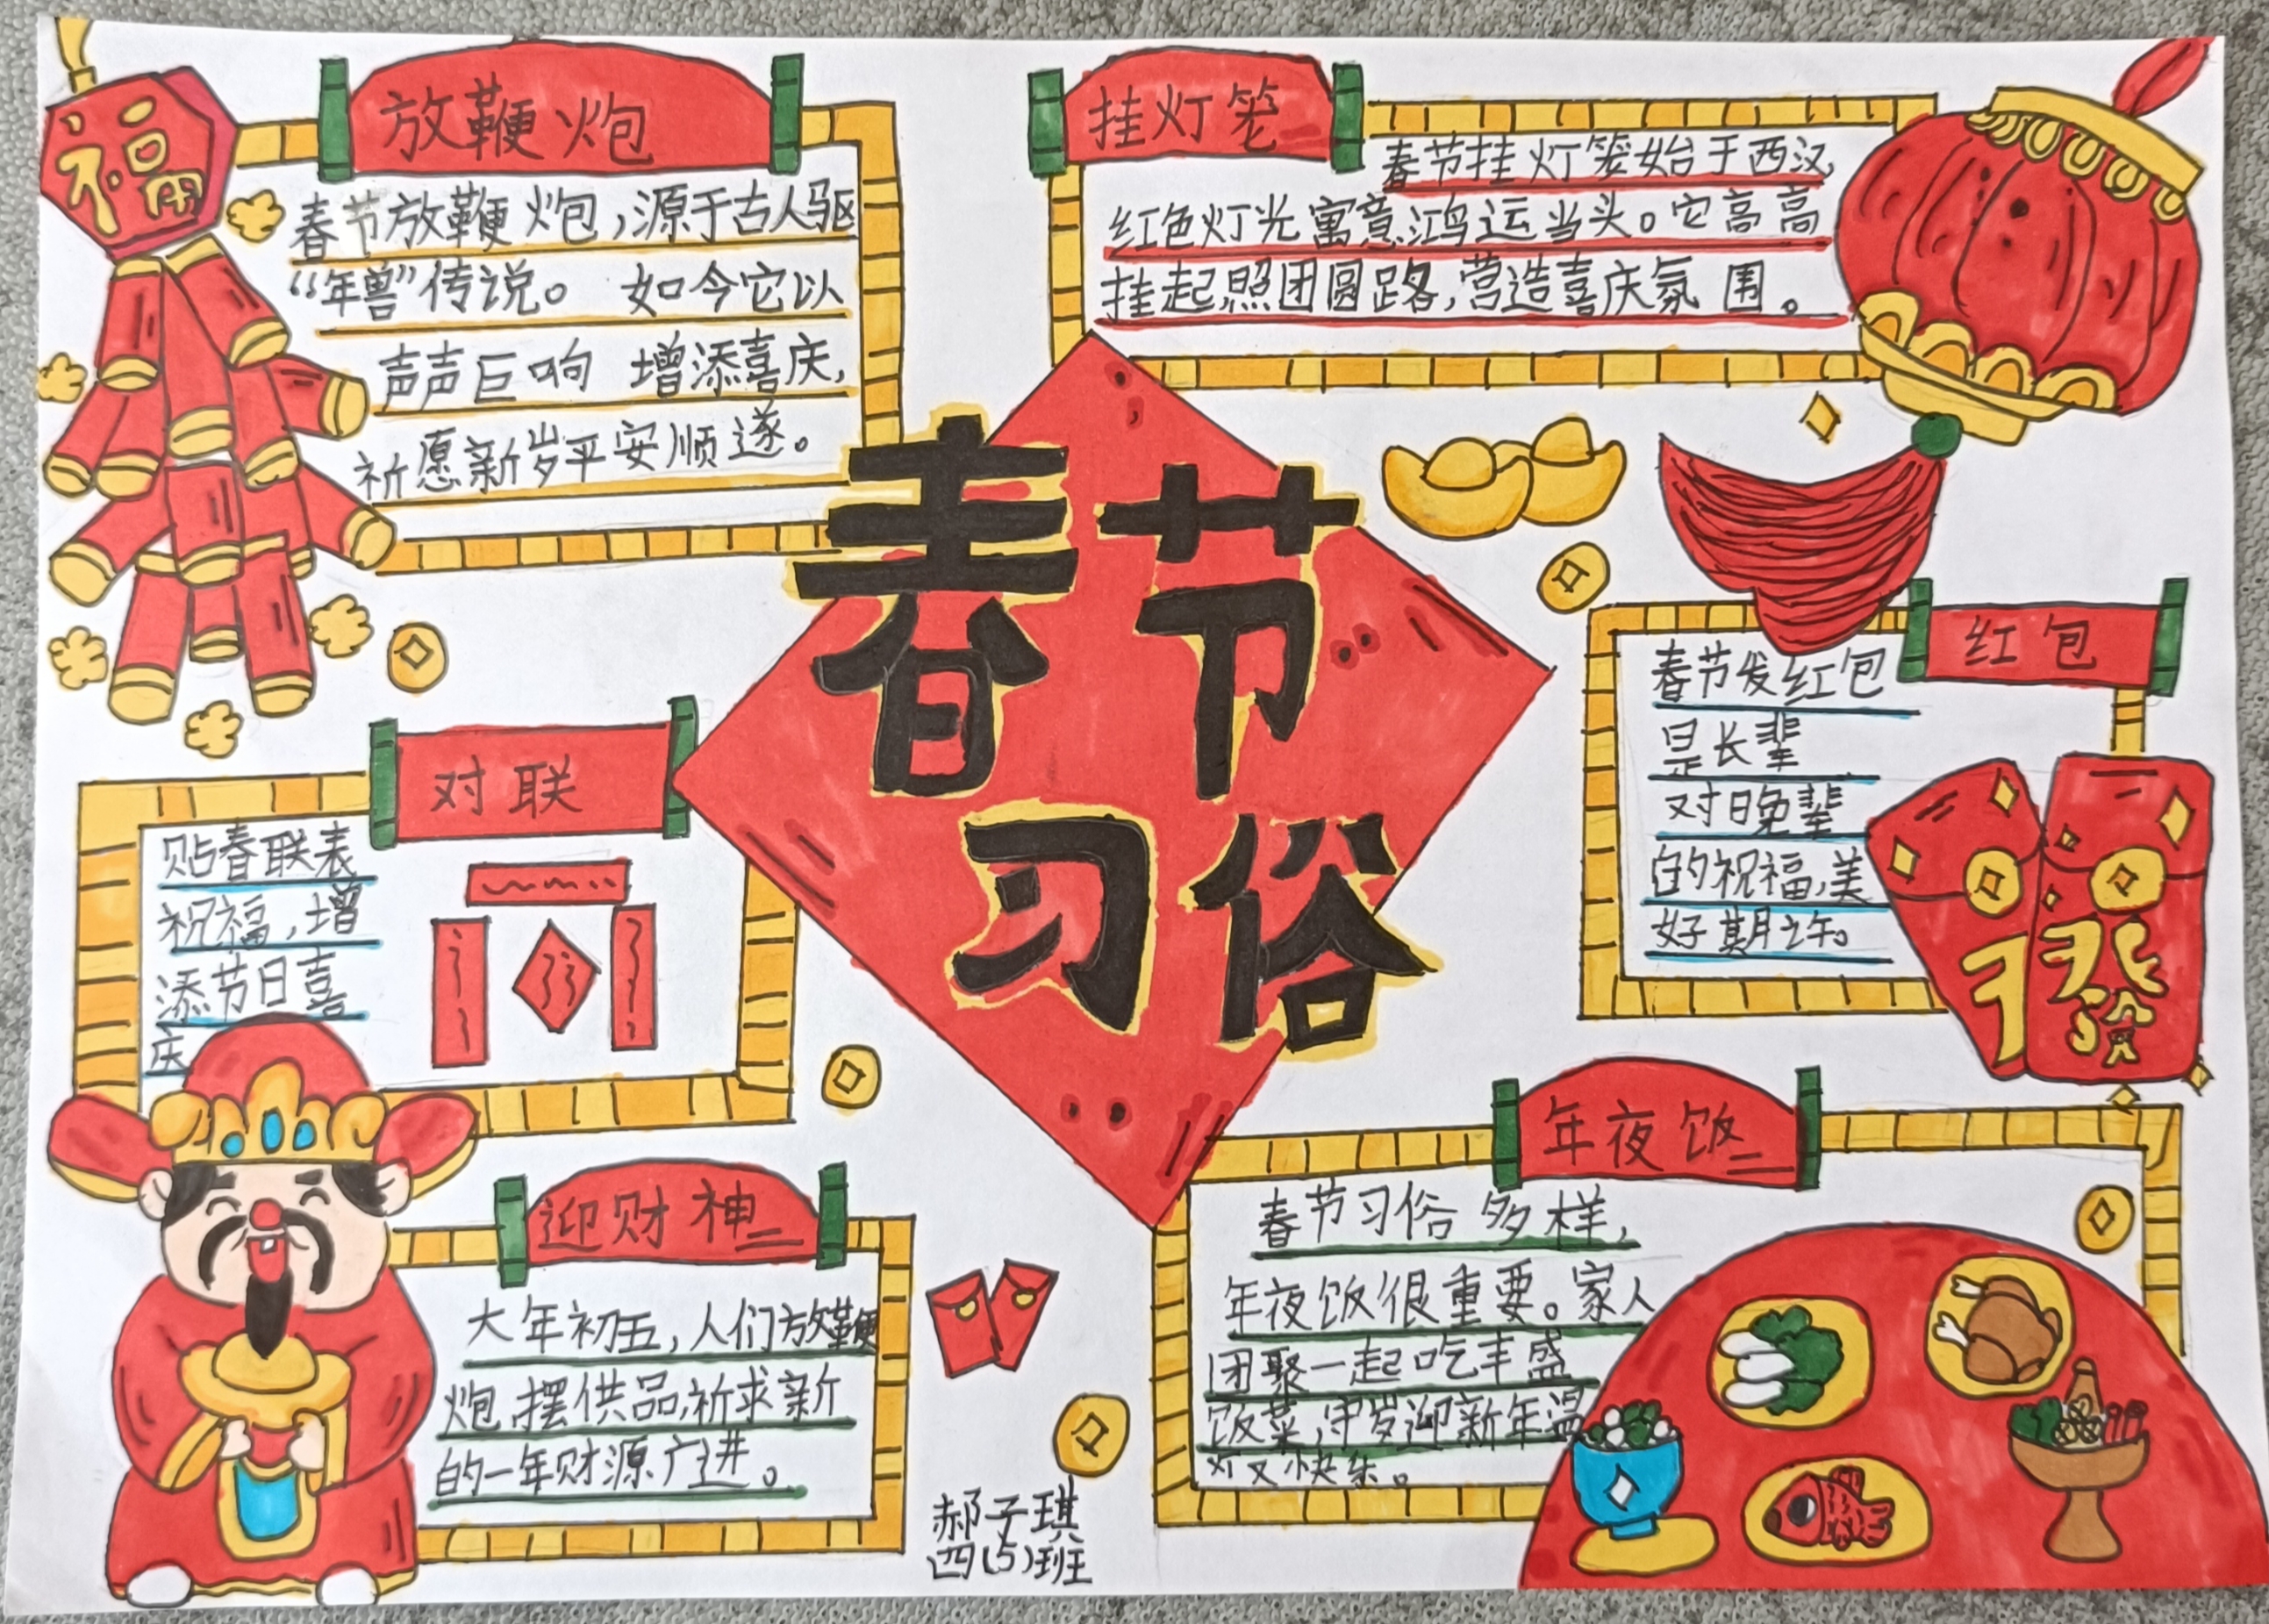 福
放鞭炮
春节放鞭炮，源于古人驱
“年兽”传说。如今它以
声声巨响 增添喜庆，
祈愿新岁平安顺遂。
挂灯笼
春节挂灯笼始于西汉，
红色灯光寓意鸿运当头。它高高
挂起，照团圆路，营造喜庆氛围。
春节
习俗
红包
春节发红包
是长辈
对晚辈
的祝福，美
好期许。
發
对联
贴春联表
祝福，增
添节日喜
庆
迎财神
大年初五，人们放鞭
炮，摆供品，祈求新
的一年财源广进。
年夜饭
春节习俗多样，
年夜饭很重要。家人
团聚一起吃丰盛
饭菜，守岁迎新年温
又快乐。
郝子琪
四(5)班